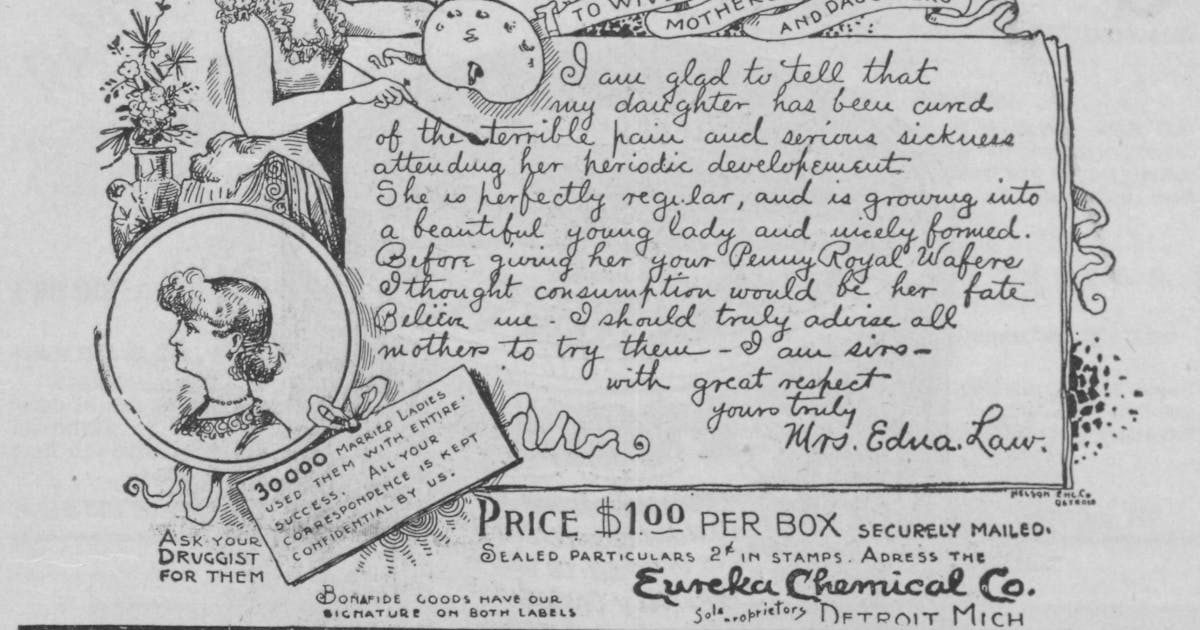 TO WIV
MOTHER
AND DAUGHTERS
I am glad to tell that
my daughter has been cured
of the terrible pain and serious sickness
attending her periodic developement
She is perfectly regular, and is growing into
a beautiful young lady and nicely formed.
Before giving her your PennyRoyal Wafers
I thought consumption would be her fate
Believe me - I should truly advise all
mothers to try them - I am sirs -
with great respect
yours truly
Mrs. Edna. Law.
30000 MARRIED LADIES
USED THEM WITH ENTIRE
SUCCESS. ALL YOUR
CORRESPONDENCE IS KEPT
CONFIDENTIAL BY US.
NELSON ENG. CO
DETROIT
ASK YOUR
DRUGGIST
FOR THEM
PRICE $1.00 PER BOX SECURELY MAILED.
SEALED PARTICULARS 2¢ IN STAMPS. ADRESS THE
Eureka Chemical Co.
Sole proprietors DETROIT MICH
BONAFIDE GOODS HAVE OUR
SIGNATURE ON BOTH LABELS